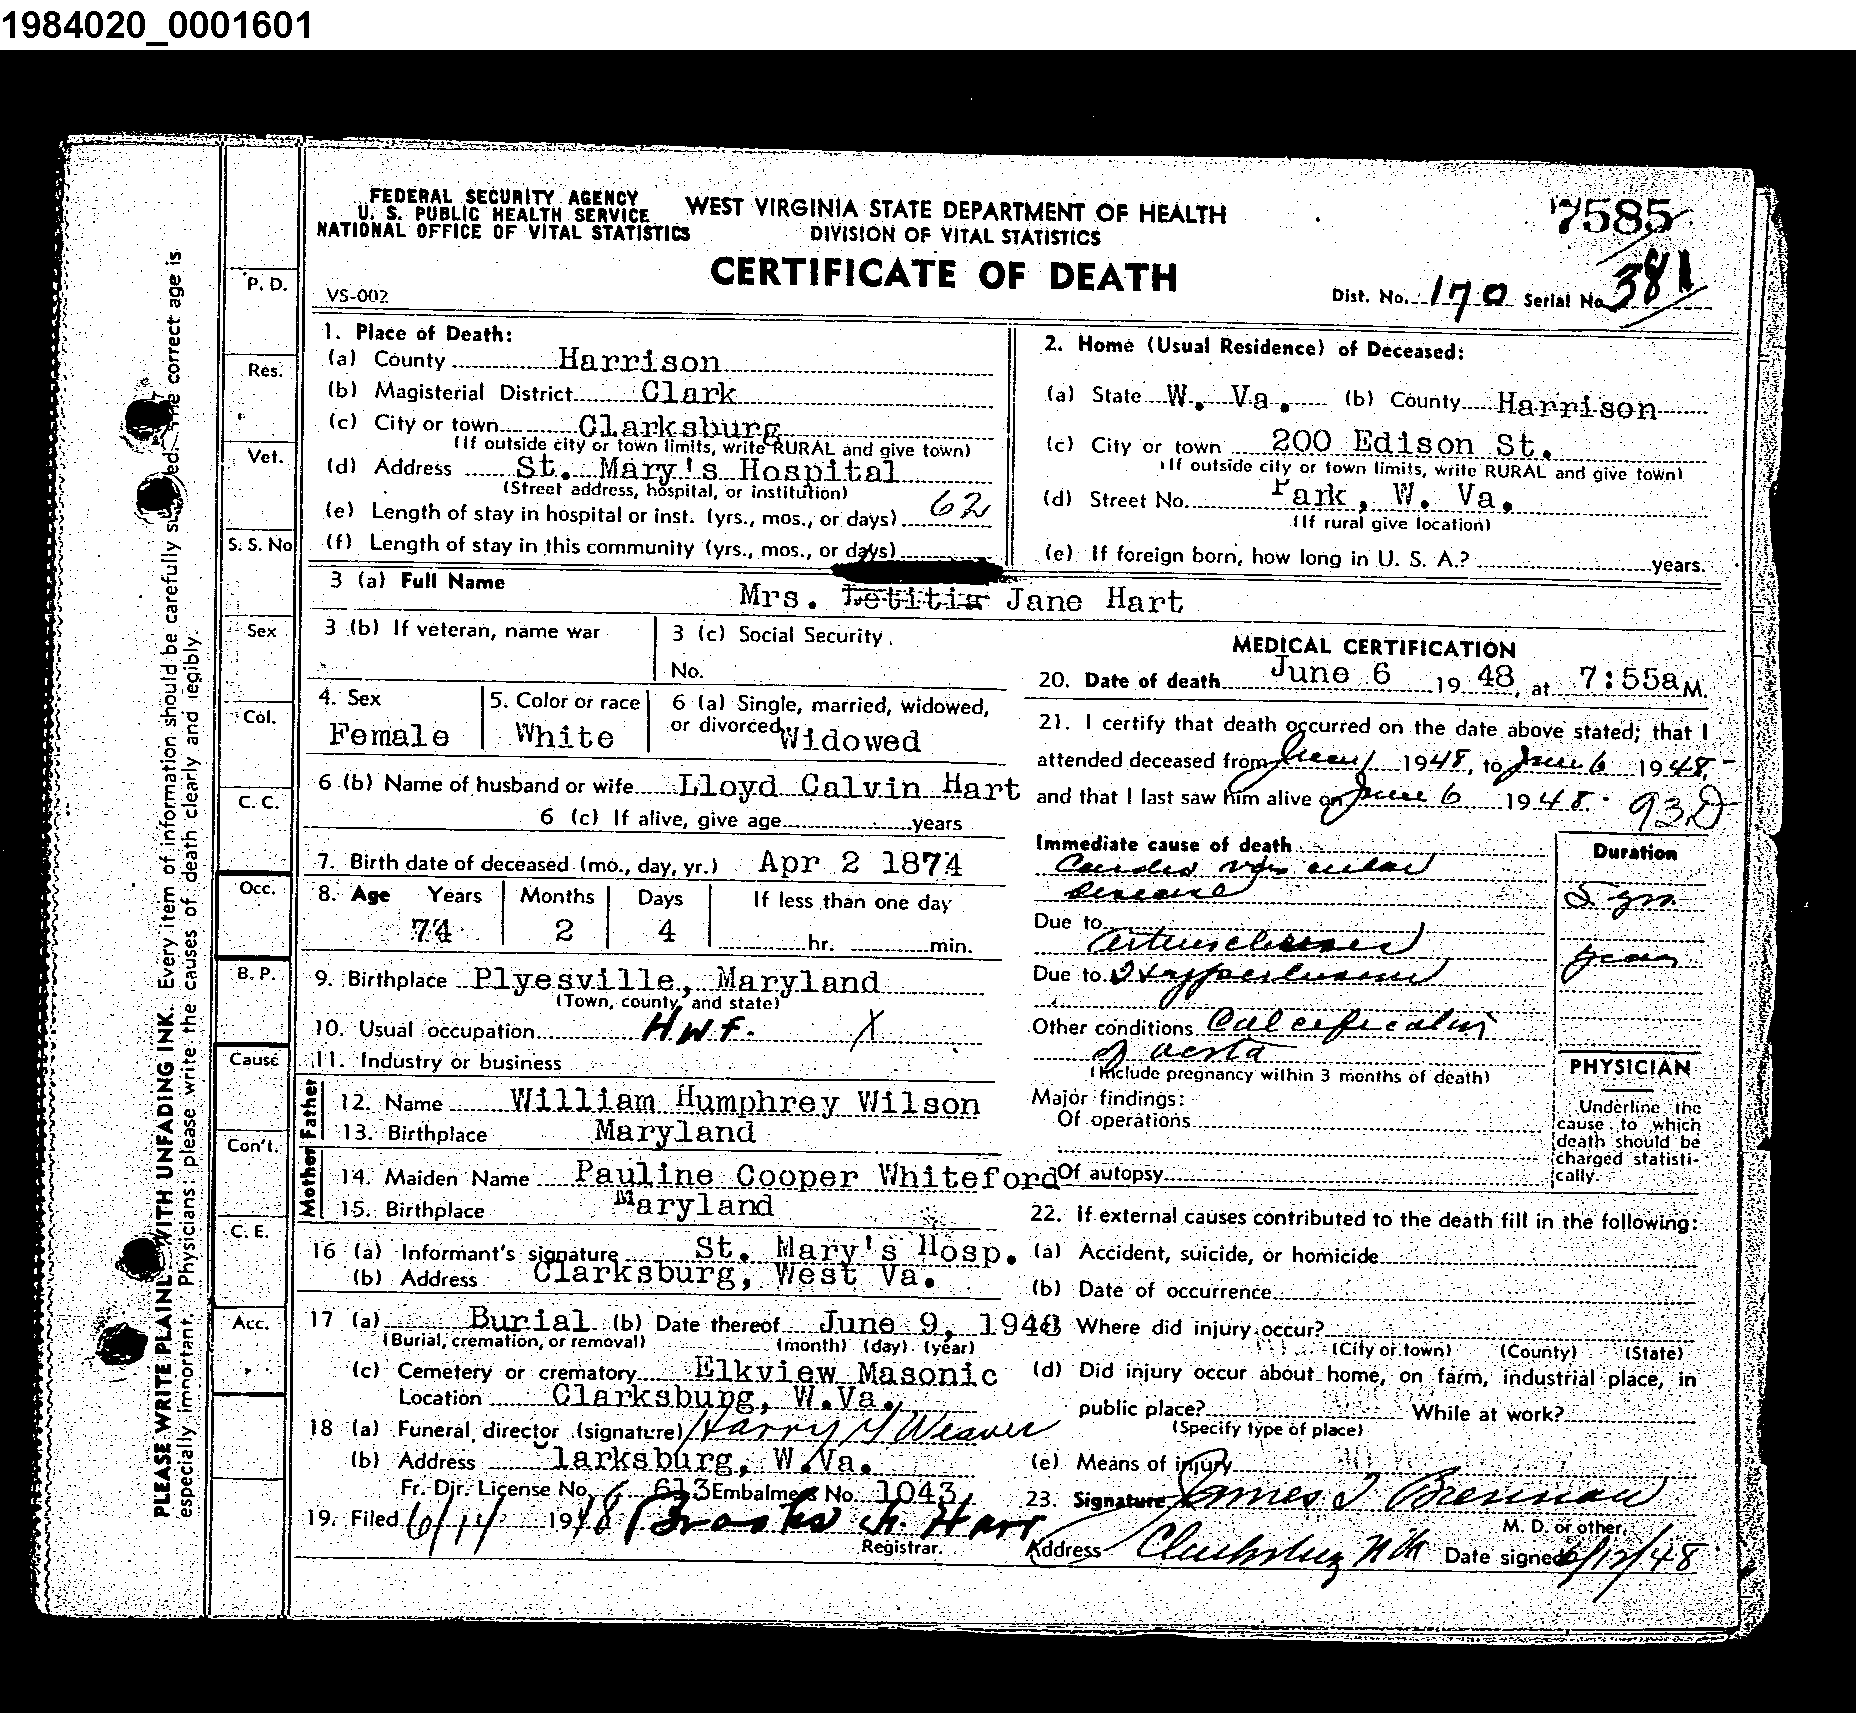 1984020_0001601
FEDERAL SECURITY AGENCY
U. S. PUBLIC HEALTH SERVICE
NATIONAL OFFICE OF VITAL STATISTICS
WEST VIRGINIA STATE DEPARTMENT OF HEALTH
DIVISION OF VITAL STATISTICS
CERTIFICATE OF DEATH
7585
VS-002
Dist. No. 170 Serial No. 381
1. Place of Death:
(a) County Harrison
(b) Magisterial District Clark
(c) City or town Clarksburg
(If outside city or town limits, write RURAL and give town)
(d) Address St. Mary's Hospital
(Street address, hospital, or institution)
(e) Length of stay in hospital or inst. (yrs., mos., or days) 62
(f) Length of stay in this community (yrs., mos., or days)
2. Home (Usual Residence) of Deceased:
(a) State W. Va. (b) County Harrison
(c) City or town 200 Edison St.
(If outside city or town limits, write RURAL and give town)
(d) Street No. Park, W. Va.
(If rural give location)
(e) If foreign born, how long in U. S. A.? years.
3 (a) Full Name Mrs. Letitia Jane Hart
3 (b) If veteran, name war
3 (c) Social Security
No.
4. Sex
Female
5. Color or race
White
6 (a) Single, married, widowed,
or divorced Widowed
6 (b) Name of husband or wife Lloyd Calvin Hart
6 (c) If alive, give age years
7. Birth date of deceased (mo., day, yr.) Apr 2 1874
8. Age Years Months Days If less than one day
74 2 4 hr. min.
9. Birthplace Plyesville, Maryland
(Town, county, and state)
10. Usual occupation Hwf. X
11. Industry or business
Father
12. Name William Humphrey Wilson
13. Birthplace Maryland
Mother
14. Maiden Name Pauline Cooper Whiteford
15. Birthplace Maryland
16 (a) Informant's signature St. Mary's Hosp.
(b) Address Clarksburg, West Va.
17 (a) Burial (b) Date thereof June 9, 1948
(Burial, cremation, or removal) (month) (day) (year)
(c) Cemetery or crematory Elkview Masonic
Location Clarksburg, W.Va.
18 (a) Funeral director (signature) Harry Weaver
(b) Address Clarksburg, W.Va.
Fr. Dir. License No. 613 Embalmers No. 1043
19. Filed 6/11/ 1948
Registrar.
MEDICAL CERTIFICATION
20. Date of death June 6 19 48, at 7:55a M.
21. I certify that death occurred on the date above stated; that I
attended deceased from June 1 1948, to June 6 1948,
and that I last saw him alive on June 6 1948. 93D
Immediate cause of death
Cardio vascular
disease
Duration
5 yrs
Due to Arteriosclerosis
years
Due to Hypertension
Other conditions Calcification
of aorta
(Include pregnancy within 3 months of death)
Major findings:
Of operations
Of autopsy
PHYSICIAN
Underline the
cause to which
death should be
charged statisti-
cally.
22. If external causes contributed to the death fill in the following:
(a) Accident, suicide, or homicide
(b) Date of occurrence
Where did injury occur?
(City or town) (County) (State)
(d) Did injury occur about home, on farm, industrial place, in
public place? While at work?
(Specify type of place)
(e) Means of injury
23. Signature James T Brennan
M. D. or other.
Address Clarksburg Date signed 6/12/48
P. D.
Res.
Vet.
S. S. No
Sex
Col.
C. C.
Occ.
B. P.
Cause
Con't.
C. E.
Acc.
PLEASE WRITE PLAINLY WITH UNFADING INK. Every item of information should be carefully The correct age is
especially important. Physicians: please write the causes of death clearly and legibly.